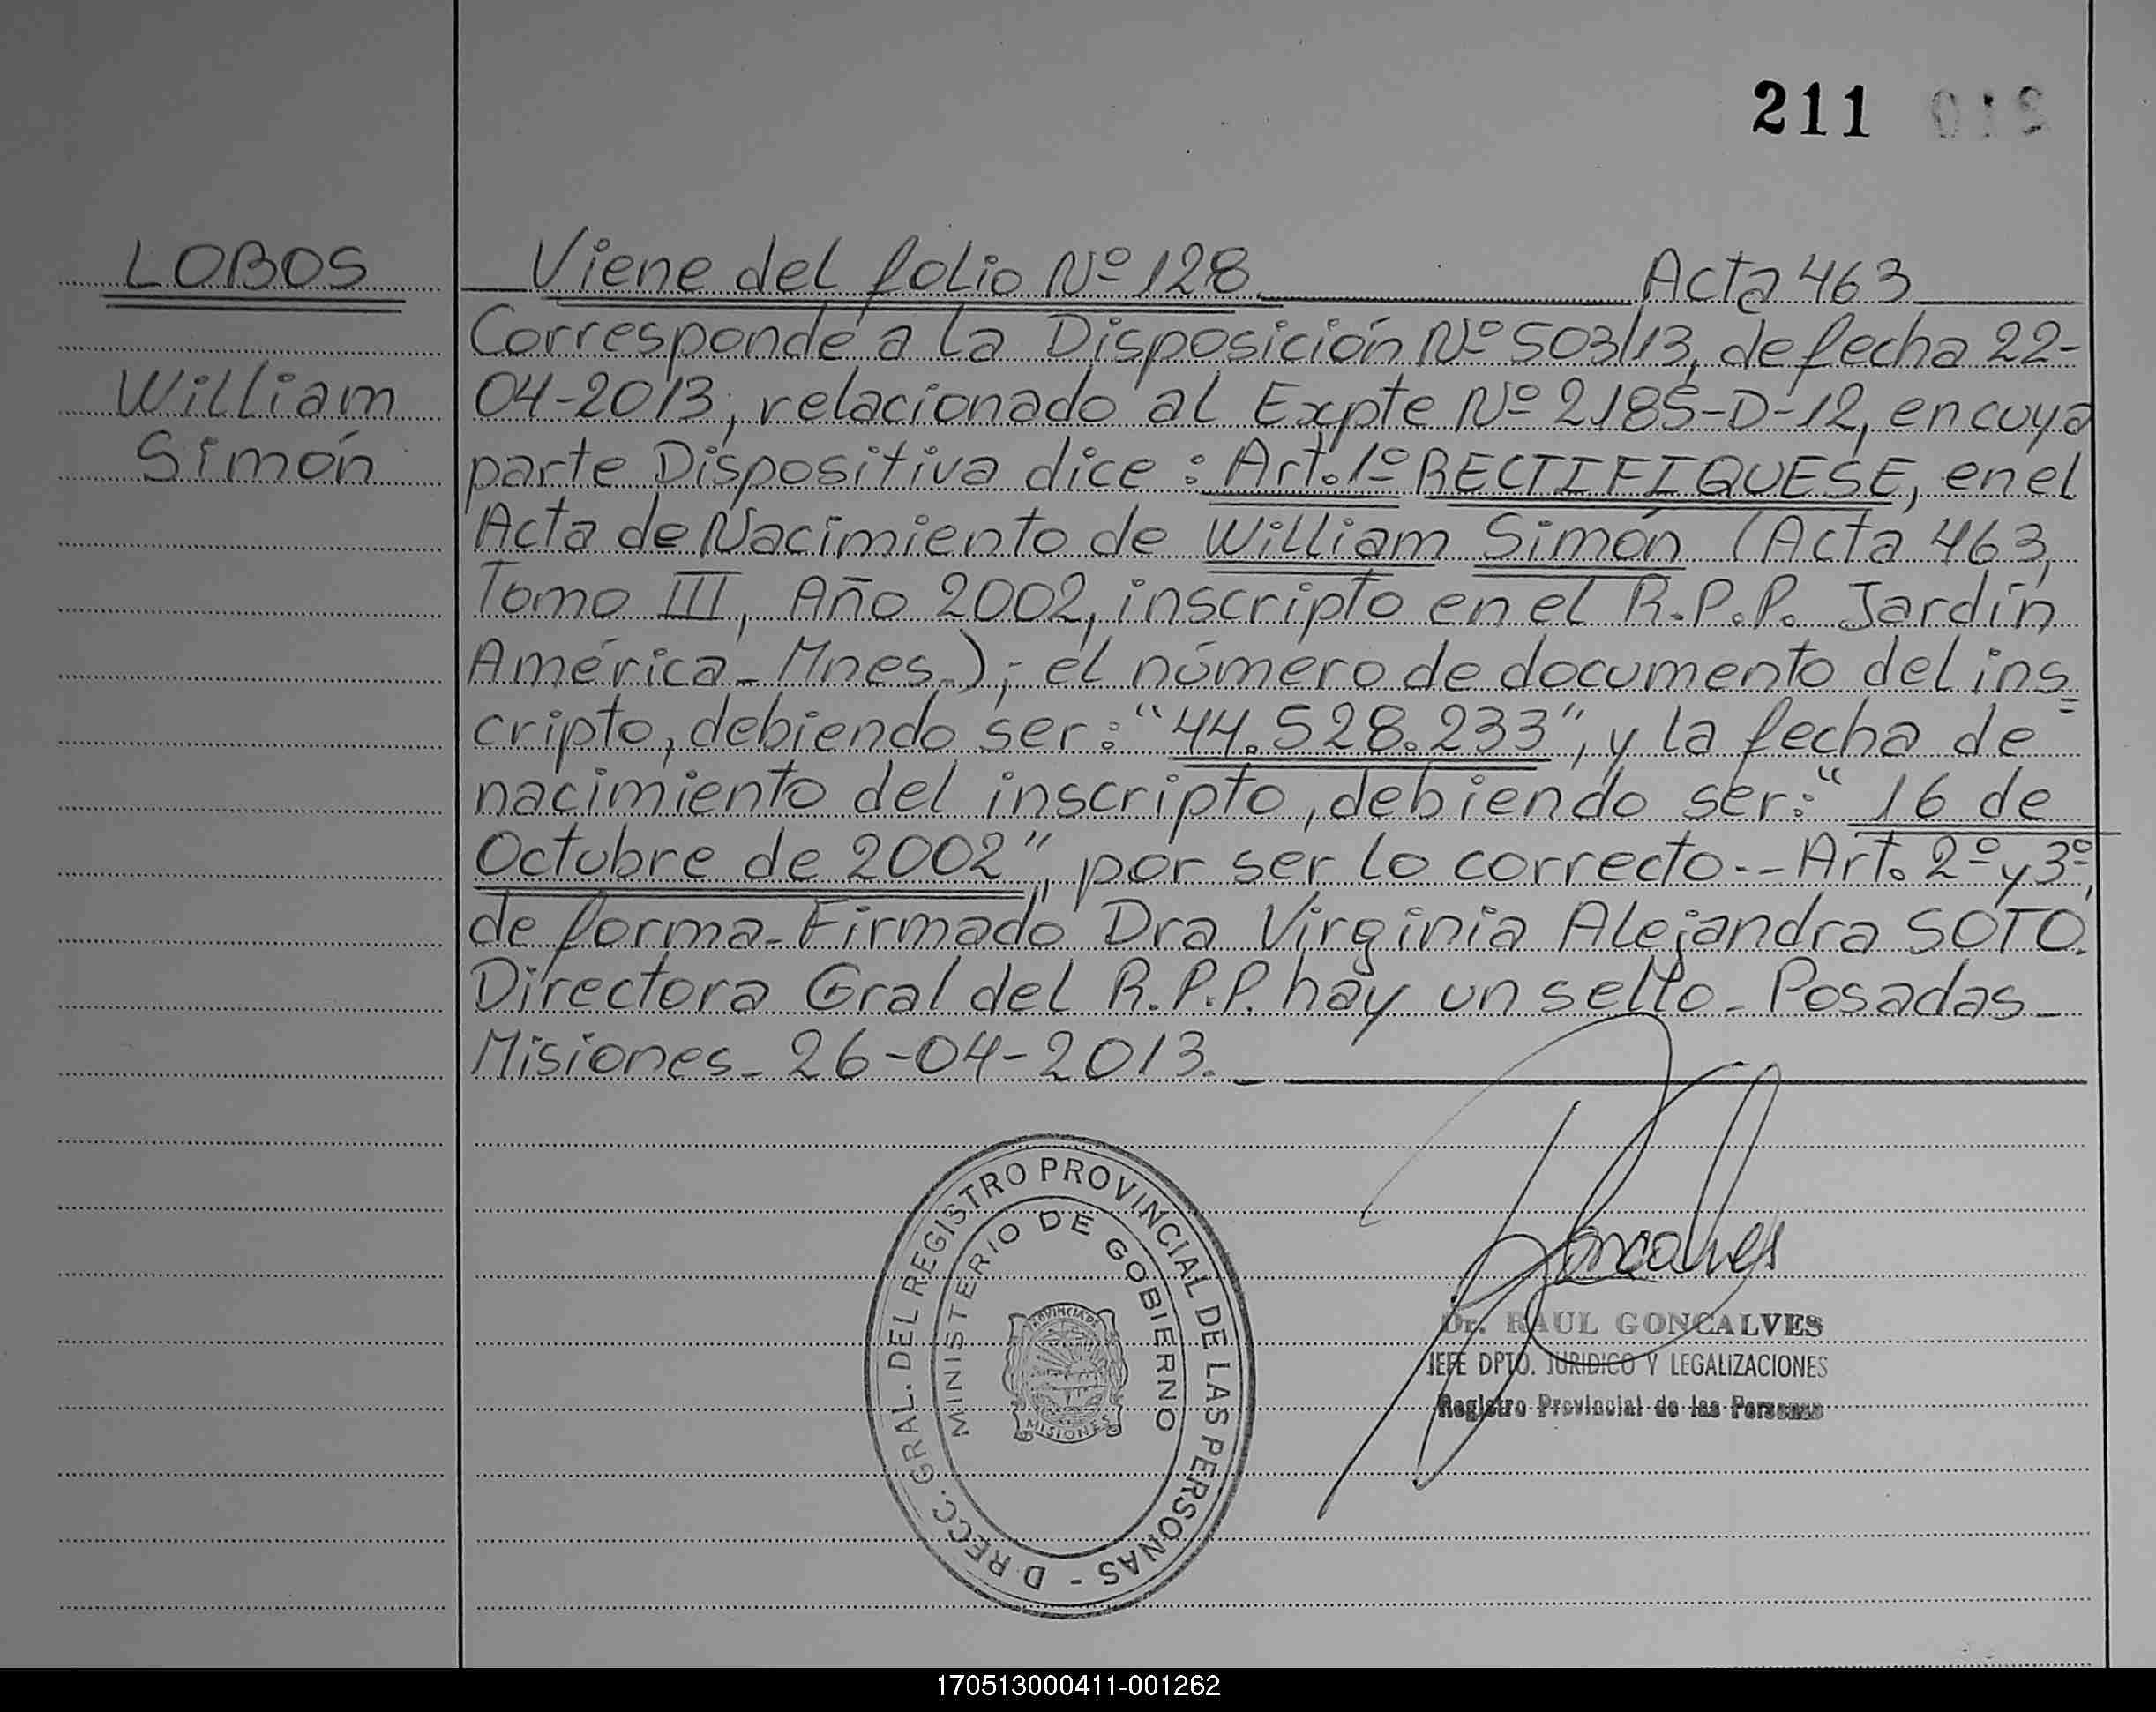 211 210
LOBOS
William
Simón
Viene del folio Nº 128. Acta 463
Corresponde a la Disposición Nº 503/13, de fecha 22-
04-2013, relacionado al Expte Nº 2185-D-12, en cuya
parte Dispositiva dice : Art. 1º RECTIFIQUESE, en el
Acta de Nacimiento de William Simón (Acta 463,
Tomo III, Año 2002, inscripto en el R.P.P. Jardín
América - Mnes.); el número de documento del ins=
cripto, debiendo ser : "44.528.233", y la fecha de
nacimiento del inscripto, debiendo ser: "16 de
Octubre de 2002", por ser lo correcto.- Art. 2º y 3º,
de forma - Firmado Dra Virginia Alejandra SOTO.
Directora Gral del R.P.P. hay un sello - Posadas -
Misiones - 26-04-2013.
DRECC. GRAL. DEL REGISTRO PROVINCIAL DE LAS PERSONAS -
MINISTERIO DE GOBIERNO
PROVINCIA DE
MISIONES
Goncalves
Dr. RAUL GONCALVES
JEFE DPTO. JURIDICO Y LEGALIZACIONES
Registro Provincial de las Personas
170513000411-001262